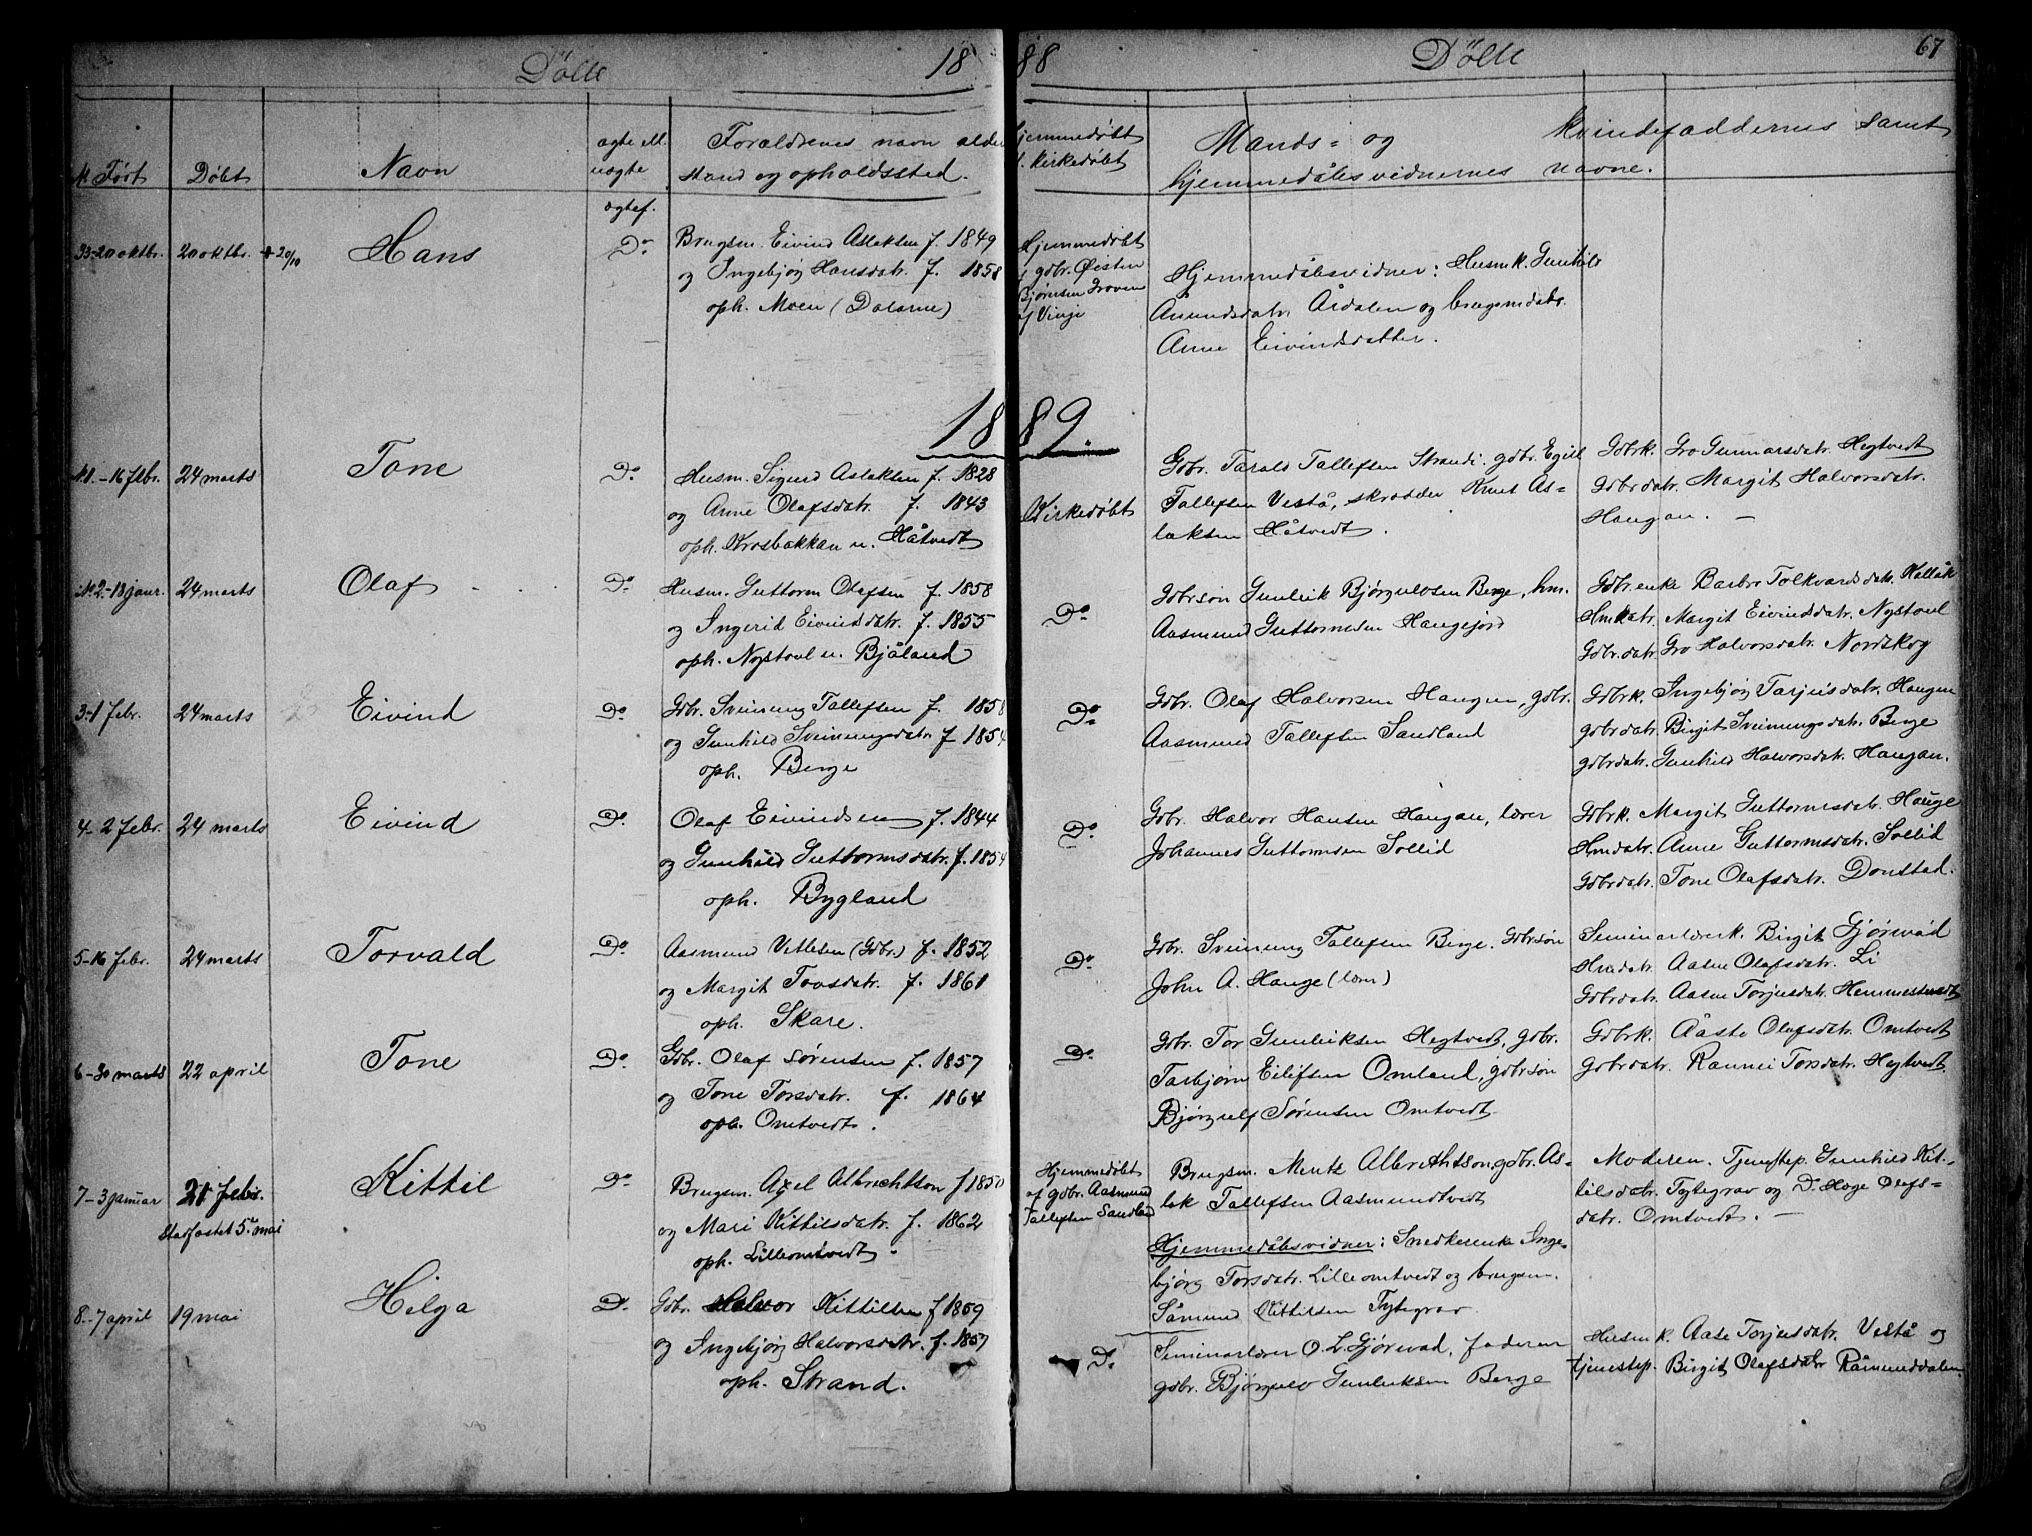 Døbte 18 88 Døbte 67
N. Født Døbt Navn ægte el. uægte Forældrenes navn alder stand og opholdssted. Hjemmedøbt el. kirkedøbt Mands= og kvindefaddernes samt
hjemmedåbsvidnernes navne.
ægtef.
33-20 oktbr. 20 oktbr. + 20/10 Hans Do Brugsm. Eivind Aslaksen f. 1849
og Ingebjørg Hansdatr. f. 1858
oph. Moen (Dalarne)
Hjemmedøbt
af gdbr. Øisten
Bjørnsen Groven
af Vinje
Hjemmedåbsvidner: Husmk. Gunhild
Åmundsdatr. Årdalen og brugsmdatr.
Anne Eivindsdatter.
1889.
N. 1.-16 febr. 24 marts Tone Do Husm. Sigurd Aslaksen f. 1828
og Anne Olafsdatr. f. 1843
oph. Krosbakkan u. Håtvedt
Kirkedøbt
Gdbr. Tarald Tallefsen Strandi. gdbr. Egill
Tallefsen Vestå, skrædder Knut As=
laksen Håtvedt.
Gdbrk. Gro Gunnarsdatr. Hegtvedt
Gdbrdatr. Margit Halvorsdatr.
Haugan. —
N. 2-18 janr. 24 marts Olaf Do Husm. Guttorm Olafsen f. 1858
og Ingerid Eivindsdatr. f. 1855
oph. Nystoul u. Bjåland
Do
Gdbrsøn Gunleik Bjørgulvsen Berge, hm.
Aasmund Guttormsen Haugejord
Gdbrenke Barbro Folkvardsdatr. Kallåk
Hmdatr. Margit Eivindsdatr. Nystoul
Gdbr.datr. Gro Halvorsdatr. Nordskog
3-1 febr. 24 marts Eivind Do Gdbr. Sveinung Tallefsen f. 1858
og Gunhild Sveinungsdatr. f 1854
oph. Berge
Do
Gdbr. Olaf Halvorsen Haugen, gdbr.
Aasmund Tallefsen Sandland
Gdbrk. Ingebjørg Tarjeisdatr. Haugen
gdbrdatr. Birgit Sveinungsdatr. Berge
gdbrdatr. Gunhild Halvorsdatr. Haugan.
4-2 febr. 24 marts Eivind Do Olaf Eivindsen f. 1844
og Gunhild Guttormsdatr. f. 1854
oph. Bygland
Do
Gdbr. Halvor Hansen Haugan, lærer
Johannes Guttormsen Sollid
Gdbrk. Margit Guttormsdatr. Hauge
Hmdatr. Anne Guttormsdatr. Sollid
Gdbrdatr. Tone Olafsdatr. Donstad.
5-16 febr. 24 marts Torvald Do Aasmund Vetlesen (Gdbr.) f. 1852
og Margit Tovsdatr. f. 1861
oph. Skare.
Do
Gdbr. Sveinung Tallefsen Berge. Gdbrsøn
John A. Hauge (lærer)
Seminarlærerk. Birgit Gjørvad
Hmdatr. Aasne Olafsdatr. Li
Gdbrdatr. Aasne Torjusdatr. Hemmestvedt
6-30 marts 22 april Tone Do Gdbr. Olaf Sørensen f. 1857
og Tone Torsdatr. f. 1864
oph. Omtvedt.
Do
Gdbr. Tor Gunleiksen Hegtvedt, gdbr.
Tarbjørn Eilefsen Omland, gdbrsøn
Bjørgulf Sørensen Omtvedt
Gdbrk. Åaste Olafsdatr. Omtvedt
Gdbrdatr. Rannei Torsdatr. Hegtvedt.
7-3 januar 21 febr. Kittil Do Brugsm. Axel Albrechtson f 1850
Stadfæstet 5. mai og Mari Kittilsdatr. f. 1862
oph. Lilleomtvedt.
Hjemmedøbt
af gdbr. Aasmund
Tallefsen Sandland
Brugsm. Mentz Albrethtson, gdbr. As=
lak Tallefsen Aasmundtvedt
Hjemmedåbsvidner: Snedkerenke Inge=
bjørg Torsdatr. Lilleomtvedt og brugsm.
Såmund Kittilsen Tytegrav
Moderen. Tjenestep. Gunhild Kit=
tilsdatr. Tytegrav og Do Hæge Olafs=
datr. Omtvedt. —
8.-7 april 19 mai Hilga Do Gdbr. Halvor Kittilsen f 1859
og Ingebjørg Halvorsdatr. f. 1857
oph. Strand.
Do
Seminarlærer O. L. Gjørvad, faderen
gdbr. Bjørgulv Gunleiksen Berge
Husmk. Aase Torjusdatr. Vestå og
tjenestep. Birgit Olafsdatr Råmunddalen